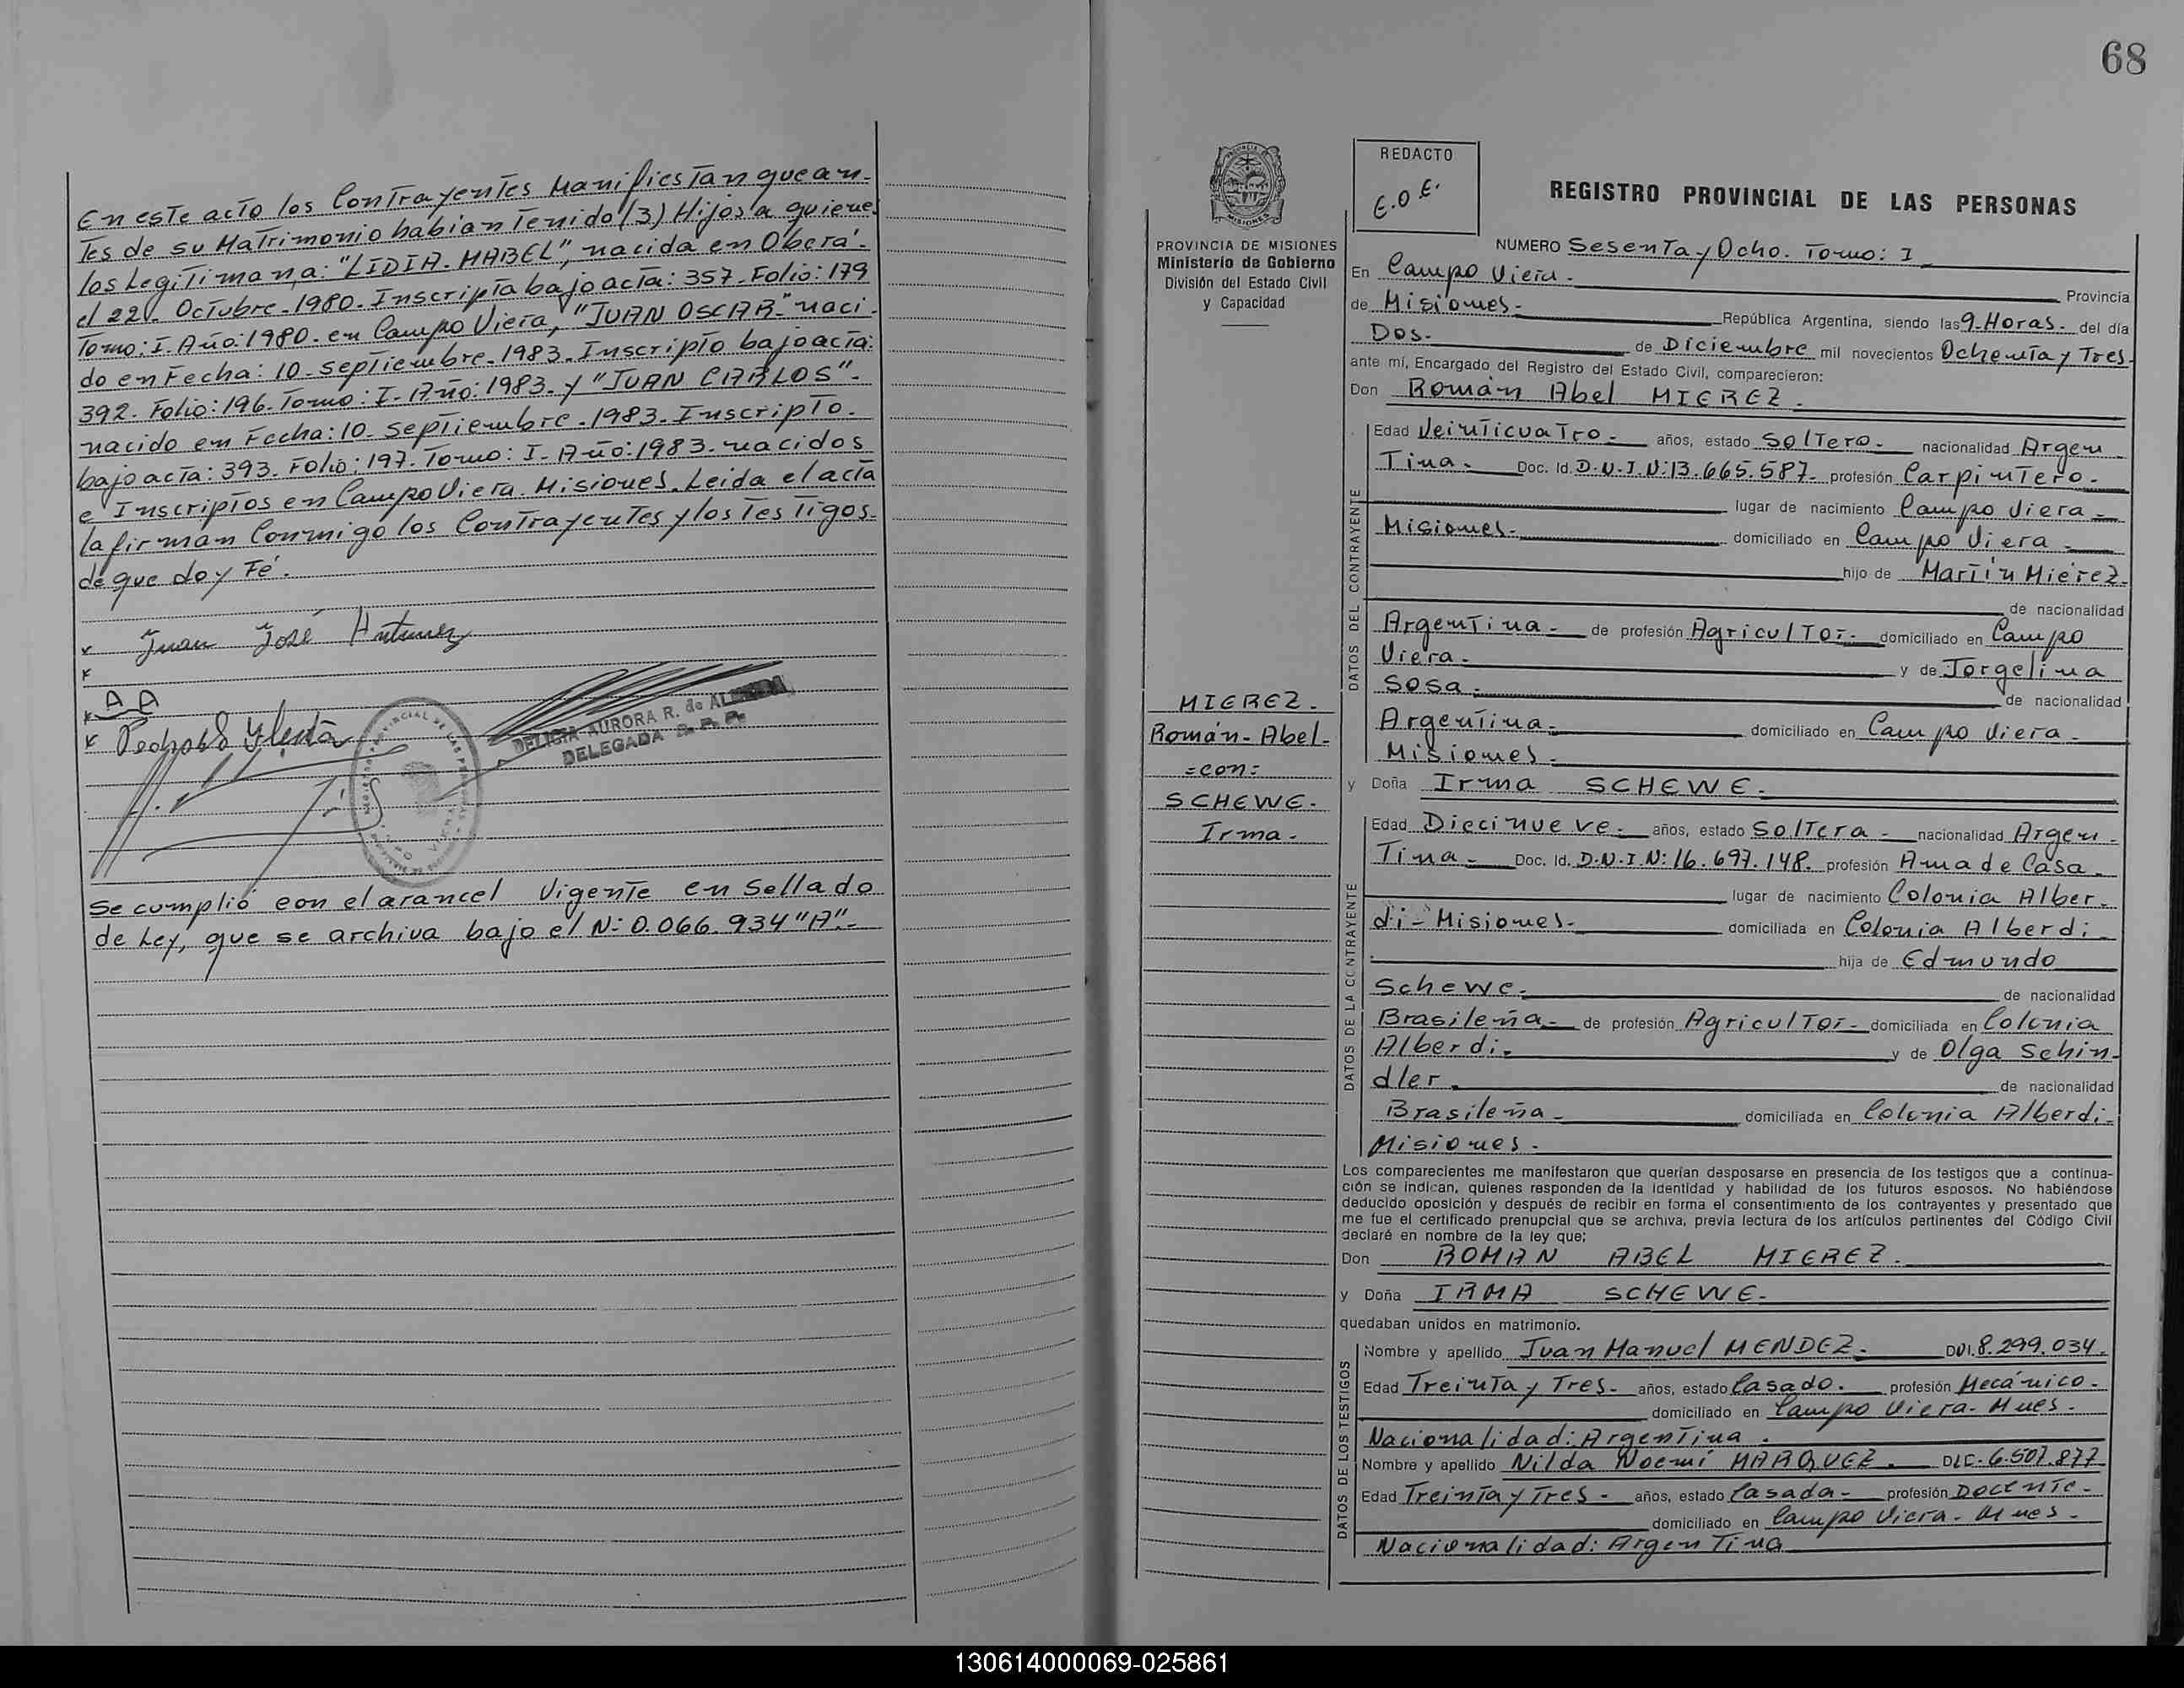 68
En este acto los Contrayentes Manifiestan que an-
tes de su Matrimonio habian Tenido (3) Hijos a quienes
los Legitiman, a: "LIDIA. MABEL", nacida en Oberá.
el 22. Octubre. 1980. Inscripta bajo acta: 357. Folio: 179
Tomo: I. Año: 1980. en Campo Viera, "JUAN OSCAR" naci-
do en Fecha: 10. septiembre. 1983. Inscripto bajo acta:
392. Folio: 196. Tomo: I. Año: 1983. y "JUAN CARLOS".
nacido en Fecha: 10. septiembre. 1983. Inscripto.
bajo acta: 393. Folio: 197. Tomo: I. Año: 1983. nacidos
e Inscriptos en Campo Viera. Misiones. Leida el acta
la firman Conmigo los Contrayentes y los Testigos.
de que doy Fé.
x Juan José Antunez
x
x A A
x
PROVINCIAL DE LAS PERSONAS
DELICIA AURORA R. de
DELEGADA
Se cumplió con el arancel Vigente en Sellado
de Ley, que se archiva bajo el N: 0.066.934 "A".-
PROVINCIA DE MISIONES
Ministerio de Gobierno
División del Estado Civil
y Capacidad
MIEREZ.
Román-Abel-
=con=
SCHEWE.
Irma-
REDACTO
E.O.E.
REGISTRO PROVINCIAL DE LAS PERSONAS
NUMERO Sesenta y Ocho. Tomo: I
En Campo Viera. Provincia
de Misiones- República Argentina, siendo las 9-Horas. del día
Dos- de Diciembre mil novecientos Ochenta y Tres-
ante mí, Encargado del Registro del Estado Civil, comparecieron:
Don Román Abel MIEREZ.
DATOS DEL CONTRAYENTE
Edad Veinticuatro- años, estado Soltero- nacionalidad Argen-
Tina- Doc. Id. D.N.I.N: 13.665.587- profesión Carpintero-
lugar de nacimiento Campo Viera-
Misiones- domiciliado en Campo Viera-
hijo de Martín Mierez-
de nacionalidad
Argentina- de profesión Agricultor- domiciliado en Campo
Viera- y de Jorgelina
Sosa- de nacionalidad
Argentina- domiciliado en Campo Viera-
Misiones-
y Doña Irma SCHEWE-
DATOS DE LA CONTRAYENTE
Edad Diecinueve- años, estado Soltera- nacionalidad Argen-
Tina- Doc. Id. D.N.I.N: 16.697.148. profesión Ama de Casa-
lugar de nacimiento Colonia Alber-
di- Misiones- domiciliada en Colonia Alberdi-
hija de Edmundo
Schewe- de nacionalidad
Brasileña- de profesión Agricultor- domiciliada en Colonia
Alberdi- y de Olga Schin-
dler- de nacionalidad
Brasileña- domiciliada en Colonia Alberdi-
Misiones-
Los comparecientes me manifestaron que querían desposarse en presencia de los testigos que a continua-
ción se indican, quienes responden de la identidad y habilidad de los futuros esposos. No habiéndose
deducido oposición y después de recibir en forma el consentimiento de los contrayentes y presentado que
me fue el certificado prenupcial que se archiva, previa lectura de los artículos pertinentes del Código Civil
declaré en nombre de la ley que;
Don ROMAN ABEL MIEREZ.
y Doña IRMA SCHEWE-
quedaban unidos en matrimonio.
DATOS DE LOS TESTIGOS
Nombre y apellido Juan Manuel MENDEZ- DOI. 8.299.034.
Edad Treinta y Tres- años, estado Casado. profesión Mecánico-
domiciliado en Campo Viera- Mnes-
Nacionalidad: Argentina.
Nombre y apellido Nilda Noemí MARQUEZ. DLC- 6.507.877
Edad Treinta y Tres- años, estado Casada- profesión Docente-
domiciliado en Campo Viera- Mnes-
Nacionalidad: Argentina
130614000069-025861